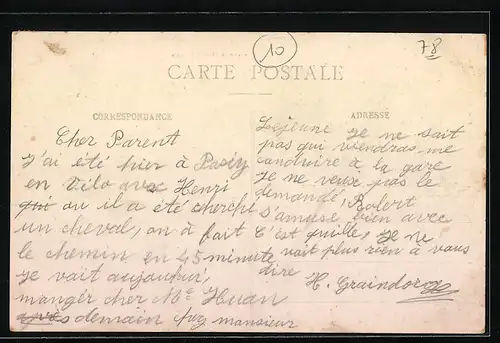 10
78
CARTE POSTALE
CORRESPONDANCE
ADRESSE
Cher Parent
J'ai été hier à Pasiy
en vélo avec Henri
ou il a été cherché
un cheval, on à fait
le chemin en 45 minute
je vait aujourhui,
manger cher Me Huan
demain chez monsieur
Lejeune je ne sait
pas qui viendras me
conduire à la gare
je ne veux pas le
demandé, Robert
s'amuse bien avec
C'est quilles, je ne
vait plus rien à vous
dire
H. Graindorge